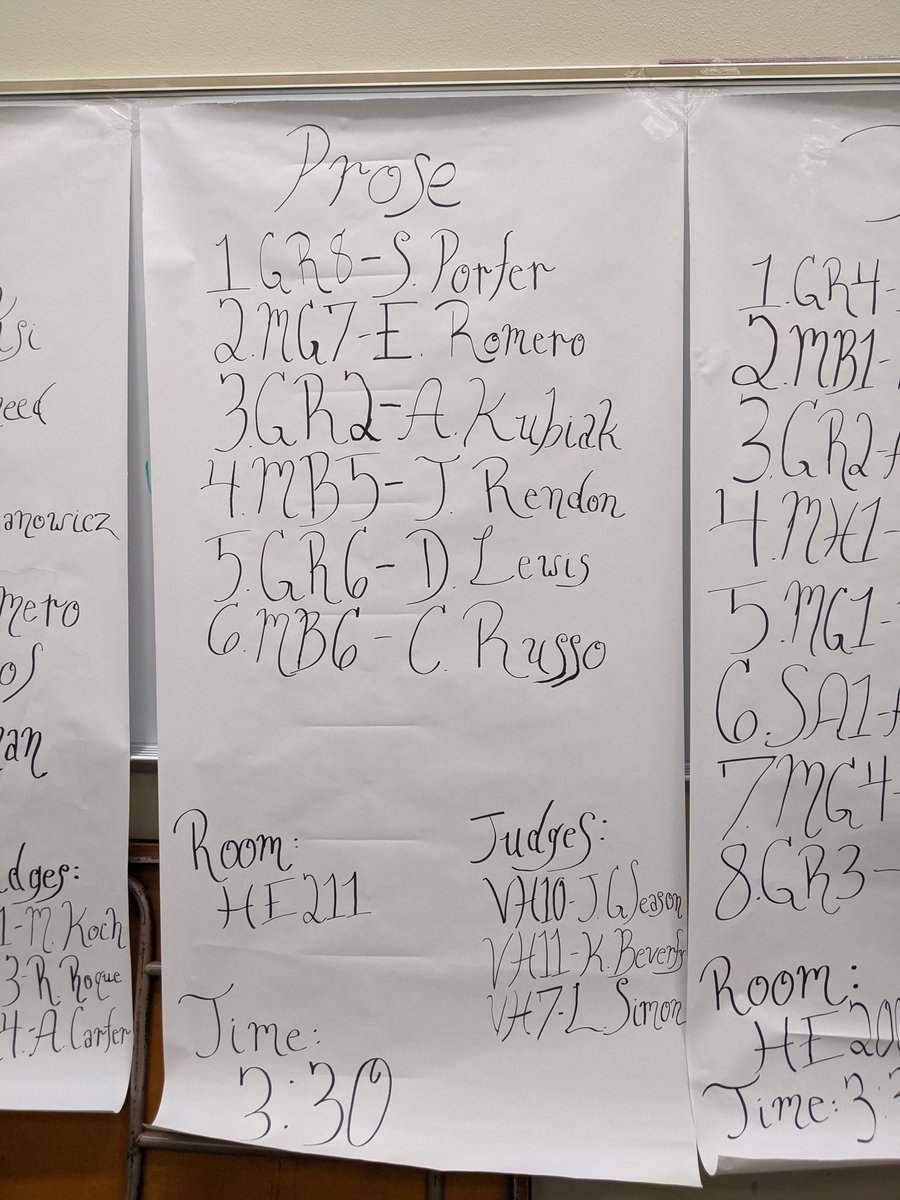 si
eed
anowicz
mero
os
an
dges:
1-M. Koch
3-R Roque
4-A. Carter
Prose
1. GR8-S. Porter
2. MG7-E. Romero
3. GR2-A. Kubiak
4. MB5-J. Rendon
5. GR6-D. Lewis
6. MB6-C. Russo
Room:
HE 211
Judges:
VH10-J. Gleason
VH11-K. Beverly
VH7-L. Simon
Time:
3:30
1. GR4-
2. MB1-
3. GR2-A
4. MH1-
5. MG1-
6. SA1-A
7. MG4-
8. GR3-
Room:
HE 200
Time: 3:3